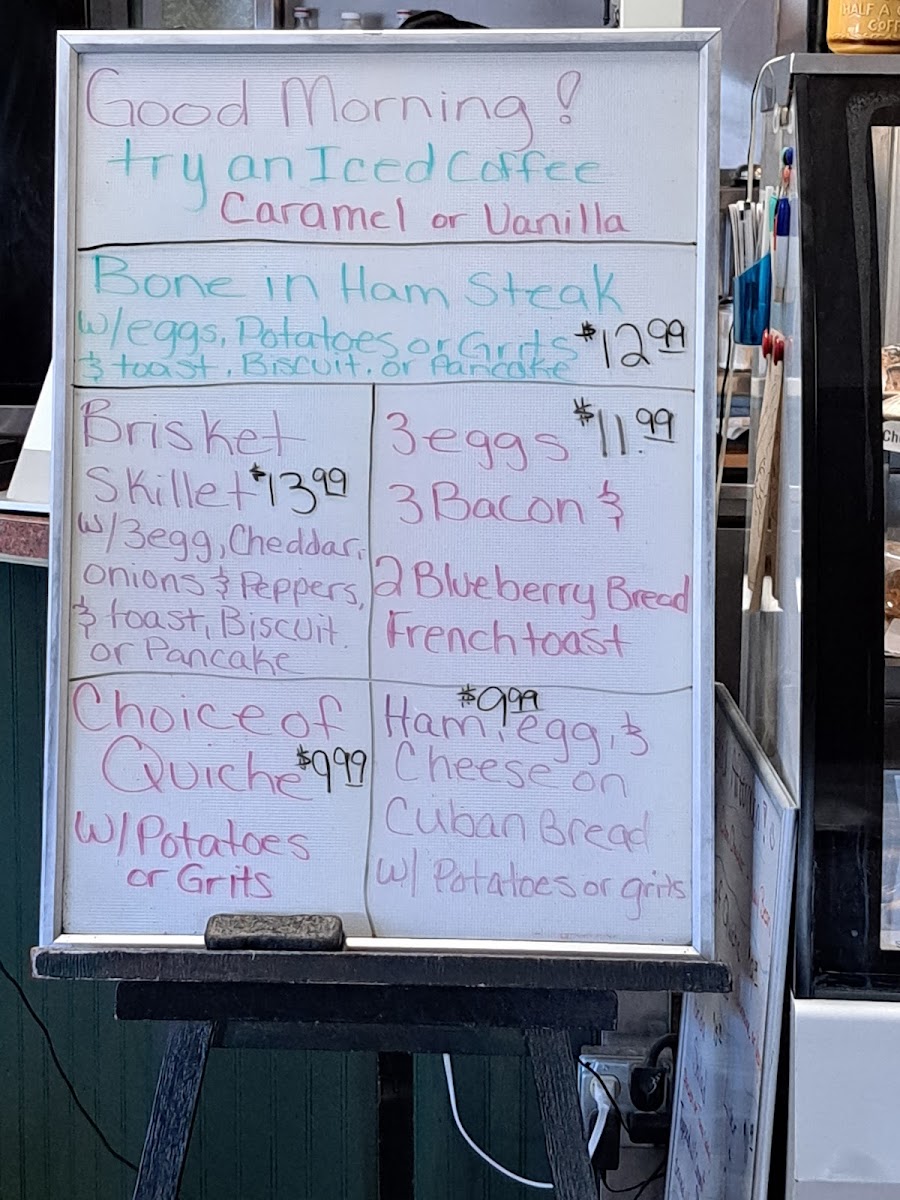 Good Morning!
try an Iced Coffee
Caramel or Vanilla
Bone in Ham Steak
w/eggs, Potatoes or Grits $12.99
& toast, Biscuit, or Pancake
Brisket
Skillet $13.99
w/3egg, Cheddar,
onions & Peppers,
& toast, Biscuit.
or Pancake
3 eggs $11.99
3 Bacon &
2 Blueberry Bread
French toast
Choice of
Quiche $9.99
w/ Potatoes
or Grits
$9.99
Ham, egg, &
Cheese on
Cuban Bread
w/ Potatoes or grits
HALF A